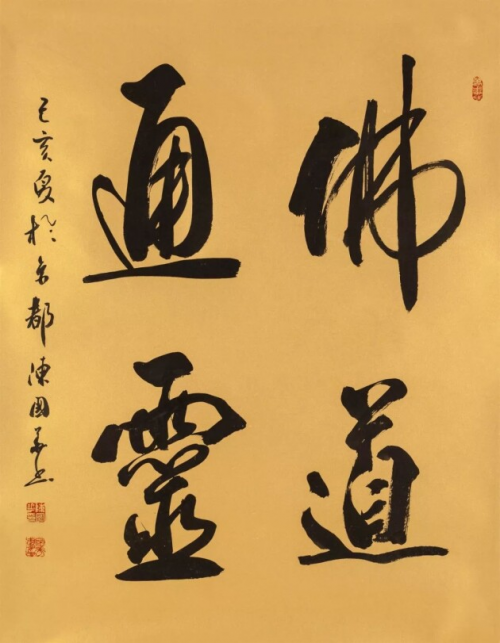 佛道
通靈
己亥夏於京都陳國